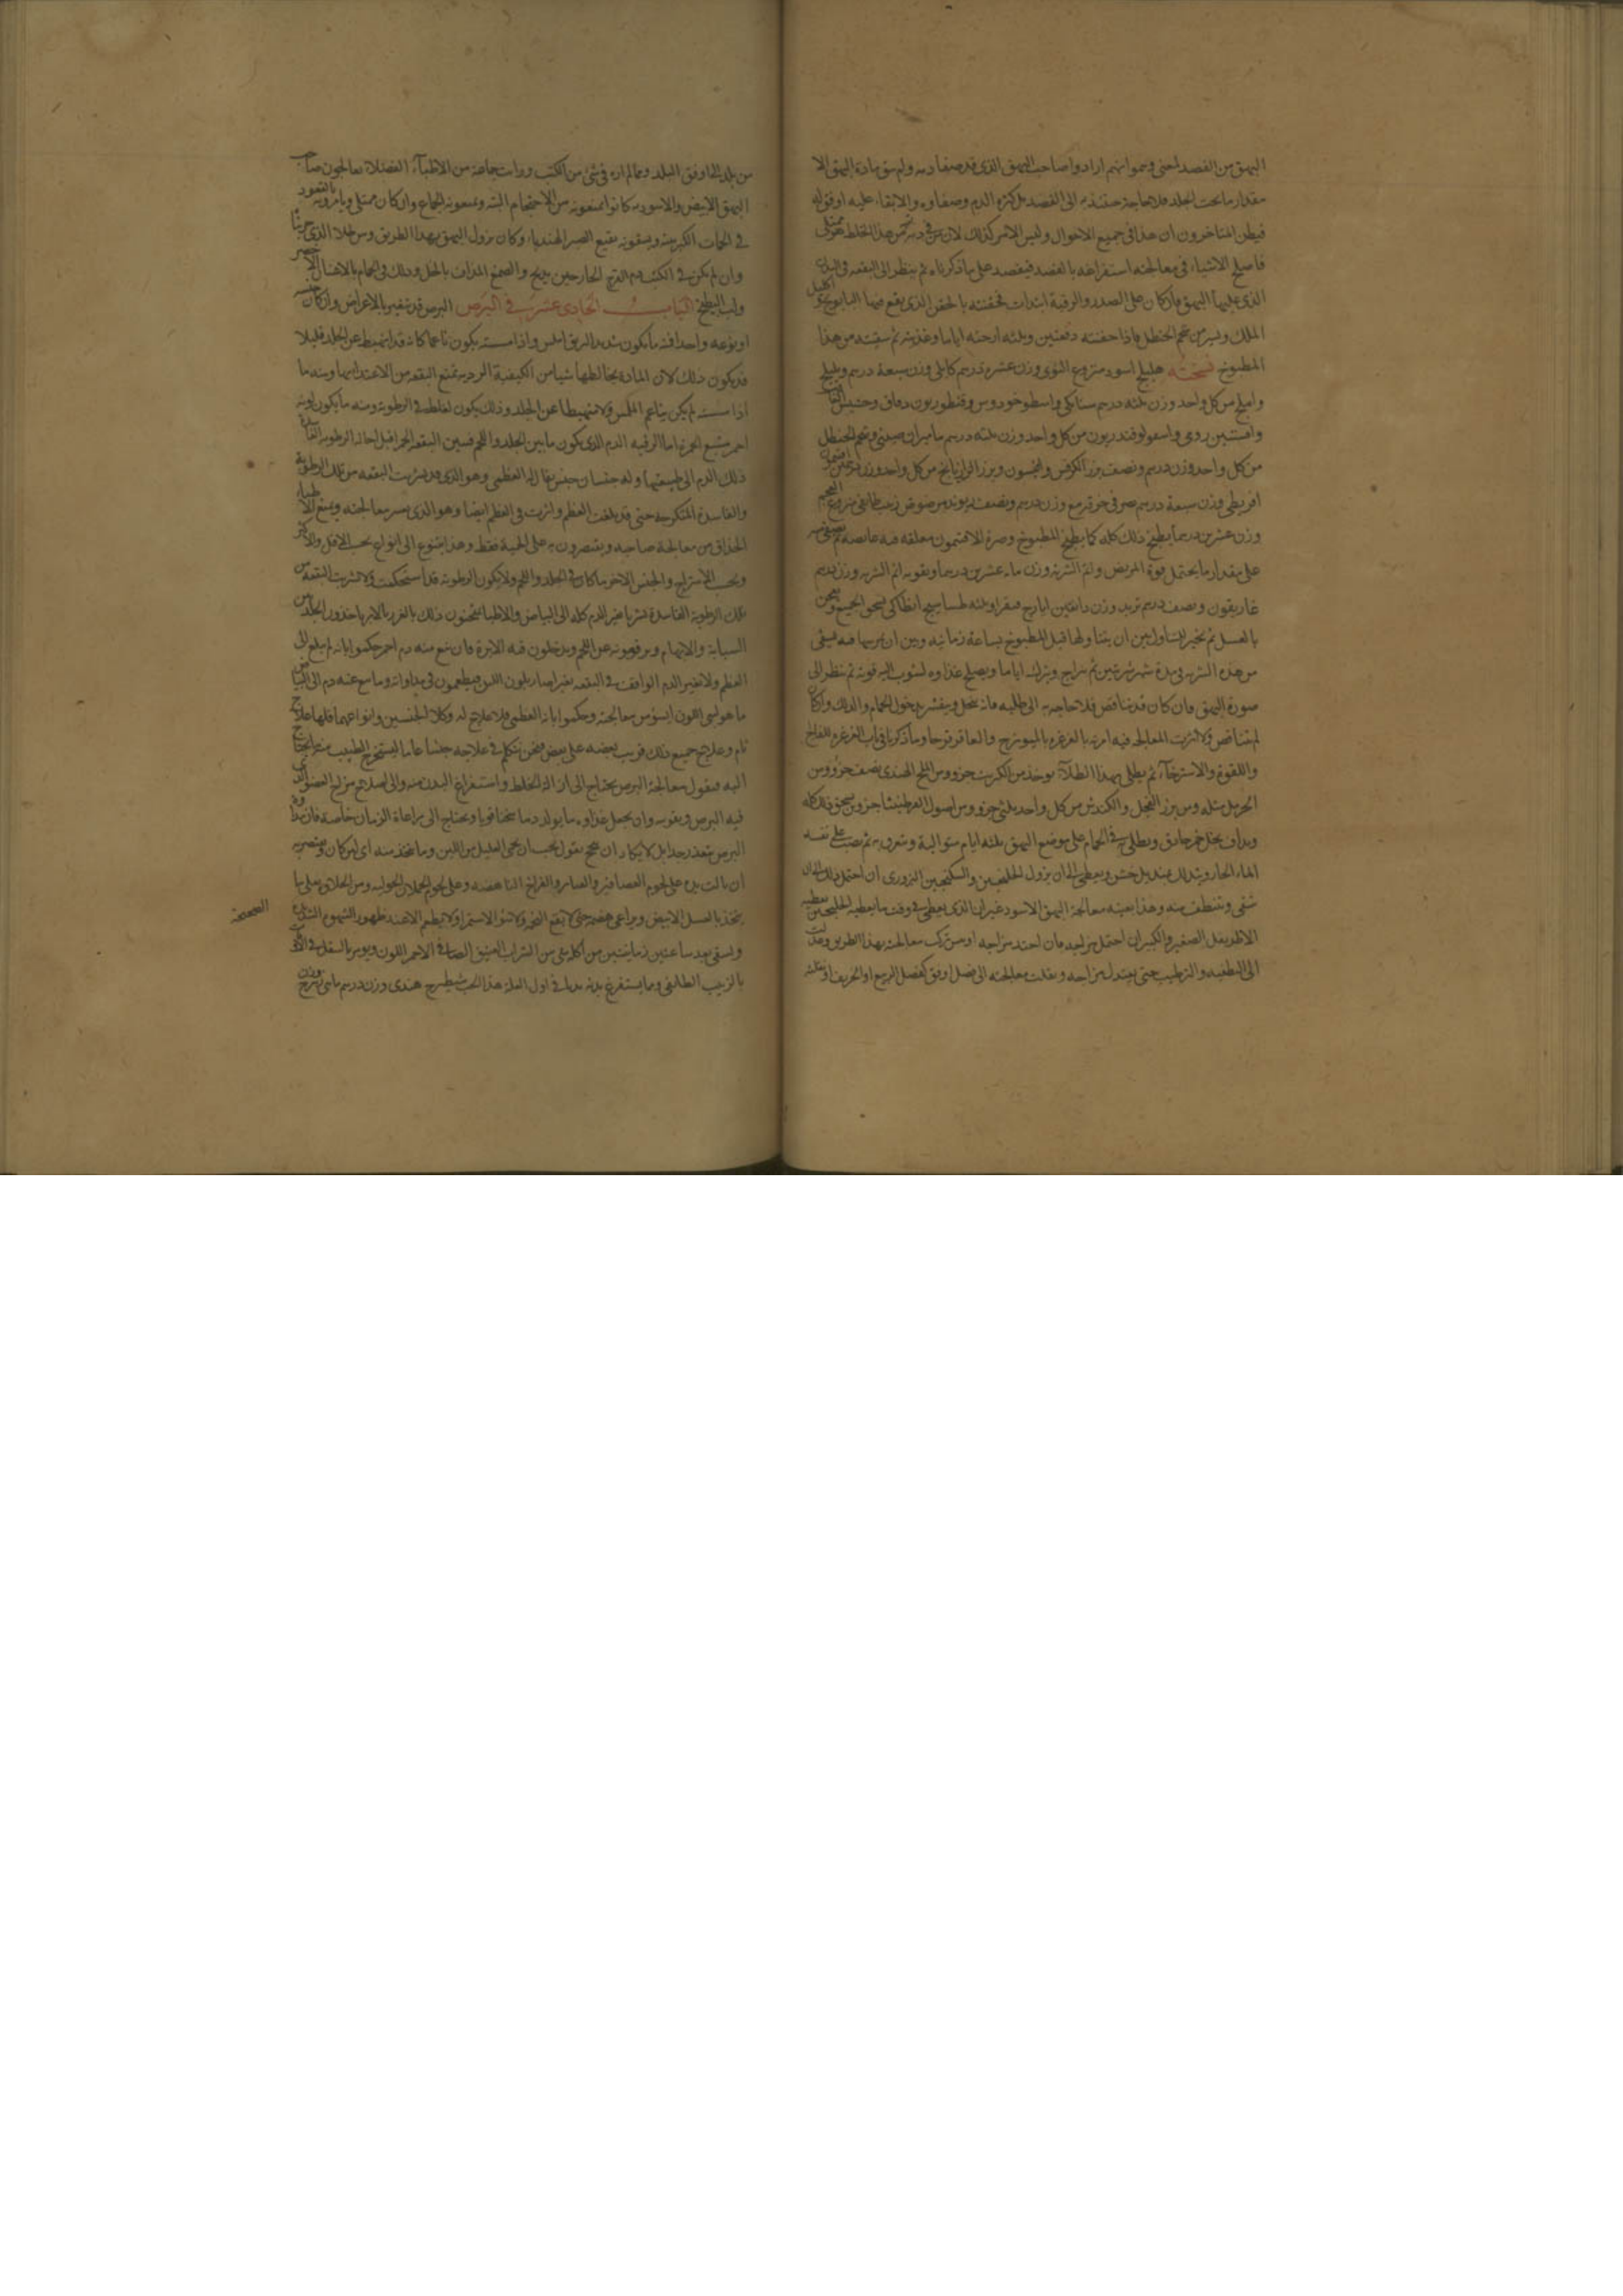 البهق من الفصد لمعنى وهو انهم ارادوا صاحب البهق الذى قد صفا دمه ولم يبق مادة البهق الا
مقدار ما تحت الجلد فلا حاجة حينئذ به الى الفصد بل كثرة الدم وصفاوه والابقاء عليه اوفق له
فيظن المتاخرون ان هذا فى جميع الاحوال وليس الامر كذلك لان من فى دمه هذا الخلط
فاصلح الاشياء فى معالجته استفراغه بالفصد فيفصد على ما ذكرناه ثم ينظر الى البقعة فى البدن
الذى عليها البهق فان كان على الصدر والرقبة ابتدات فحقنته بالحقن الذى يقع فيها البابونج واكليل
الملك وليس من شحم الحنطل فاذا حقنته دفعتين وثلثه ارحته اياما وغذيته ثم سقيته من هذا
المطبوخ نسخته هليلج اسود منزوع النوى وزن عشرة دريم كابلى وزن سبعة دريم وبليلج
واملج من كل واحد وزن ثلثه دريم سنامكى واسطوخودوس وقنطوريون دقاق وحشيش
وافسنتين رومى واسقولوقندريون من كل واحد وزن ثلثه دريم ماميران صينى وشحم الحنطل
من كل واحد وزن دريم ونصف بزر الكرفس وانيسون وبزر الرازيانج من كل واحد وزن افتيمون
اقريطى وزن سبعة دريم صر فى خرقة مع وزن دريم ونصف زبيب طايفى منزوع العجم
وزن عشرين دريما يطبخ ذلك كله كما يطبخ المطبوخ وصرة الافتيمون معلقه فيه
على مقدار ما يحتمل قوة المريض واتم الشربه وزن مايه عشرين دريما ويقويه اتم الشربه وزن دريم
غاريقون ونصف دريم تربد وزن دانقين ايارج فيقرا وثلثه انطاكى يسحق الجميع ويعجن
بالعسل ثم يخير المتناول بين ان يتناولها قبل المطبوخ بساعة زمانيه وبين ان فيه يسقى
من هذه الشربه فى مدة شهر مرتين ثم يراح ويترك اياما ويصلح غذاوه لتثوب اليه قوته ثم ينظر الى
صورة البهق فان كان قد تناقص فلا حاجه به الى طليه فانه يتحلل ويتقشر بدخول الحمام والدلك وان كان
لم يتناقص ولا اثرت المعالجه فيه امرته بالغرغره بالميويزج والعاقرقرحا وما ذكرنا فى باب الغرغره للفالج
واللقوة والاسترخاء ثم يطلى بهذا الطلاء يوخذ من الكبريت جزو ومن الملح الهندى نصف جزو ومن
الخربق مثله ومن بزر الفجل والكندش من كل واحد ثلثى جزو ومن اصول جزو يسحق ذلك كله
ويداف بخل خمر حاذق ويطلى به فى الحمام على موضع البهق ثلثه ايام متواليه ويتعرق به ثم يصب على نفسه
الماء الحار ويتدلك بمنديل خشن ويعطى الى ان يزول الجلنجبين والسكنجبين البزورى ان احتمل ذلك
تنقى وتنظف منه وهذا بعينه معالجة البهق الاسود غير ان الذى يعطى فى وقت ما يعطيه الجلنجبين
الاطريفل الصغير والكبير ان احتمل مزاجه فان احتد مزاجه او من ترك معالجته بهذا الطريق
الى التطفيه والترطيب حتى يعتدل مزاجه ونقلت معالجته الى فصل اوفق كفصل الربيع او الخريف
من بلد الى اوفق البلد ومما لم اره فى شئ من الكتب ورايت جماعة من الاطباء الفضلاء يعالجون صاحب
البهق الابيض والاسود به كانوا يمنعونه من الاحتجام البته ويمنعونه الجماع وان كان ممتلى ويامرونه بالقعود
فى الحمات الكبريتيه ويسقونه نقيع الصبر الهندباء وكان يزول البهق بهذا الطريق ومن طلا الذى
وان لم يكن فى الكتب دم القرح الخارج حين يذبح والصمغ المذاب بالخل ودلك فى الحمام بالاشنان
ولب البطيخ الباب الحادى عشر فى البرص البرص قد يتغير بالاعراض وان كان جنسه
او نوعه واحدا فمنه ما يكون شديد البريق املس واذا مسسته يكون ناعما كانه قد انهبط عن الجلد قليلا
قد يكون ذلك لان المادة يخالطها شيا من الكيفية الرديه تمنع البقعه من الاغتذا بها ومنه ما
اذا مسسته لم يكن بناعم الملمس ولا منهبطا عن الجلد وذلك يكون لغلظه فى الرطوبة ومنه ما يكون لونه
احمر مشبع الحمرة اما لرقبه الدم الذى يكون ما بين الجلد واللحم البقعة الحمرا قبل احاله الرطوبه الفاسدة
ذلك الدم الى طبيعتها وله جنسان جنس يقال له العظمى وهو الذى قد شربت البقعه من تلك الرطوبة
والفاسدة المتكرجه حتى قد بلغت العظم واثرت فى العظم ايضا وهو الذى يعسر معالجته ويمنع الاطباء
الحذاق من معالجة صاحبه ويقتصرون به على الحمية فقط وهذا يتنوع الى انواع بحسب الاقل والاكثر
وبحسب الامتزاج والجنس الاخر ما كان فى الجلد واللحم ولا يكون الرطوبه قد استحكمت ولا شربت البقعه من
تلك الرطوبة الفاسدة شربا غير الدم كله الى البياض والاطبا يمتحنون ذلك بالغرز بالابر ياخذون الجلد من
السبابة والابهام ويرفعونه عن اللحم ويدخلون فيه الابرة فان نبع منه دم احمر حكموا بانه لم يبلغ الى
العظم ولا تغير الدم الواقف فى البقعه تغيرا صار بلون اللبن فيطمعون فى مداواته وما نبع عنه دم الى البياض
ما هو ليس اهون ايسوا من معالجته وحكموا بانه العظمى فلا علاج له وكلا الجنسين وانواعهما فلها علاج
تام وعلاج جميع ذلك قريب بعضه على بعض ونحن نتكلم فى علاجه جنسا عاما ليستخرج الطبيب منه ما يحتاج
اليه فنقول معالجة البرص يحتاج الى ازالة الخلط واستفراغ البدن منه والى اصلاح مزاج العضو الذى
فيه البرص وتقويه وان يجعل غذاوه ما يولد دما سخنا قويا ويحتاج الى مراعاة الزمان خاصة فان
البرص يتعذر جدا بل لا يكاد ان ينجح نقول يجب ان يحمى العليل من اللبن وما يتخذ منه اى لبن كان ويقتصر به
ان مالت يده على لحوم العصافير والقنابر والفراخ الناهضه وعلى لحوم الحملان الحوليه ومن الحلاوى على ما
يتخذ بالعسل الابيض ويراعى هضمه حتى لا تقع التخمه ولا سوء الاستمرا ولا يطعم الا عند ظهور الشهوة الشديدة
ولسقى بعد ساعتين زمانيتين من اكله شئ من الشراب العتيق الصافى الاحمر اللون ويومر بالسفل
بالزبيب الطايفى وما يستفرغ به بدنه بديا فى اول العلة هذا الحب شيطرج هندى وزن دريم
الصحيحة